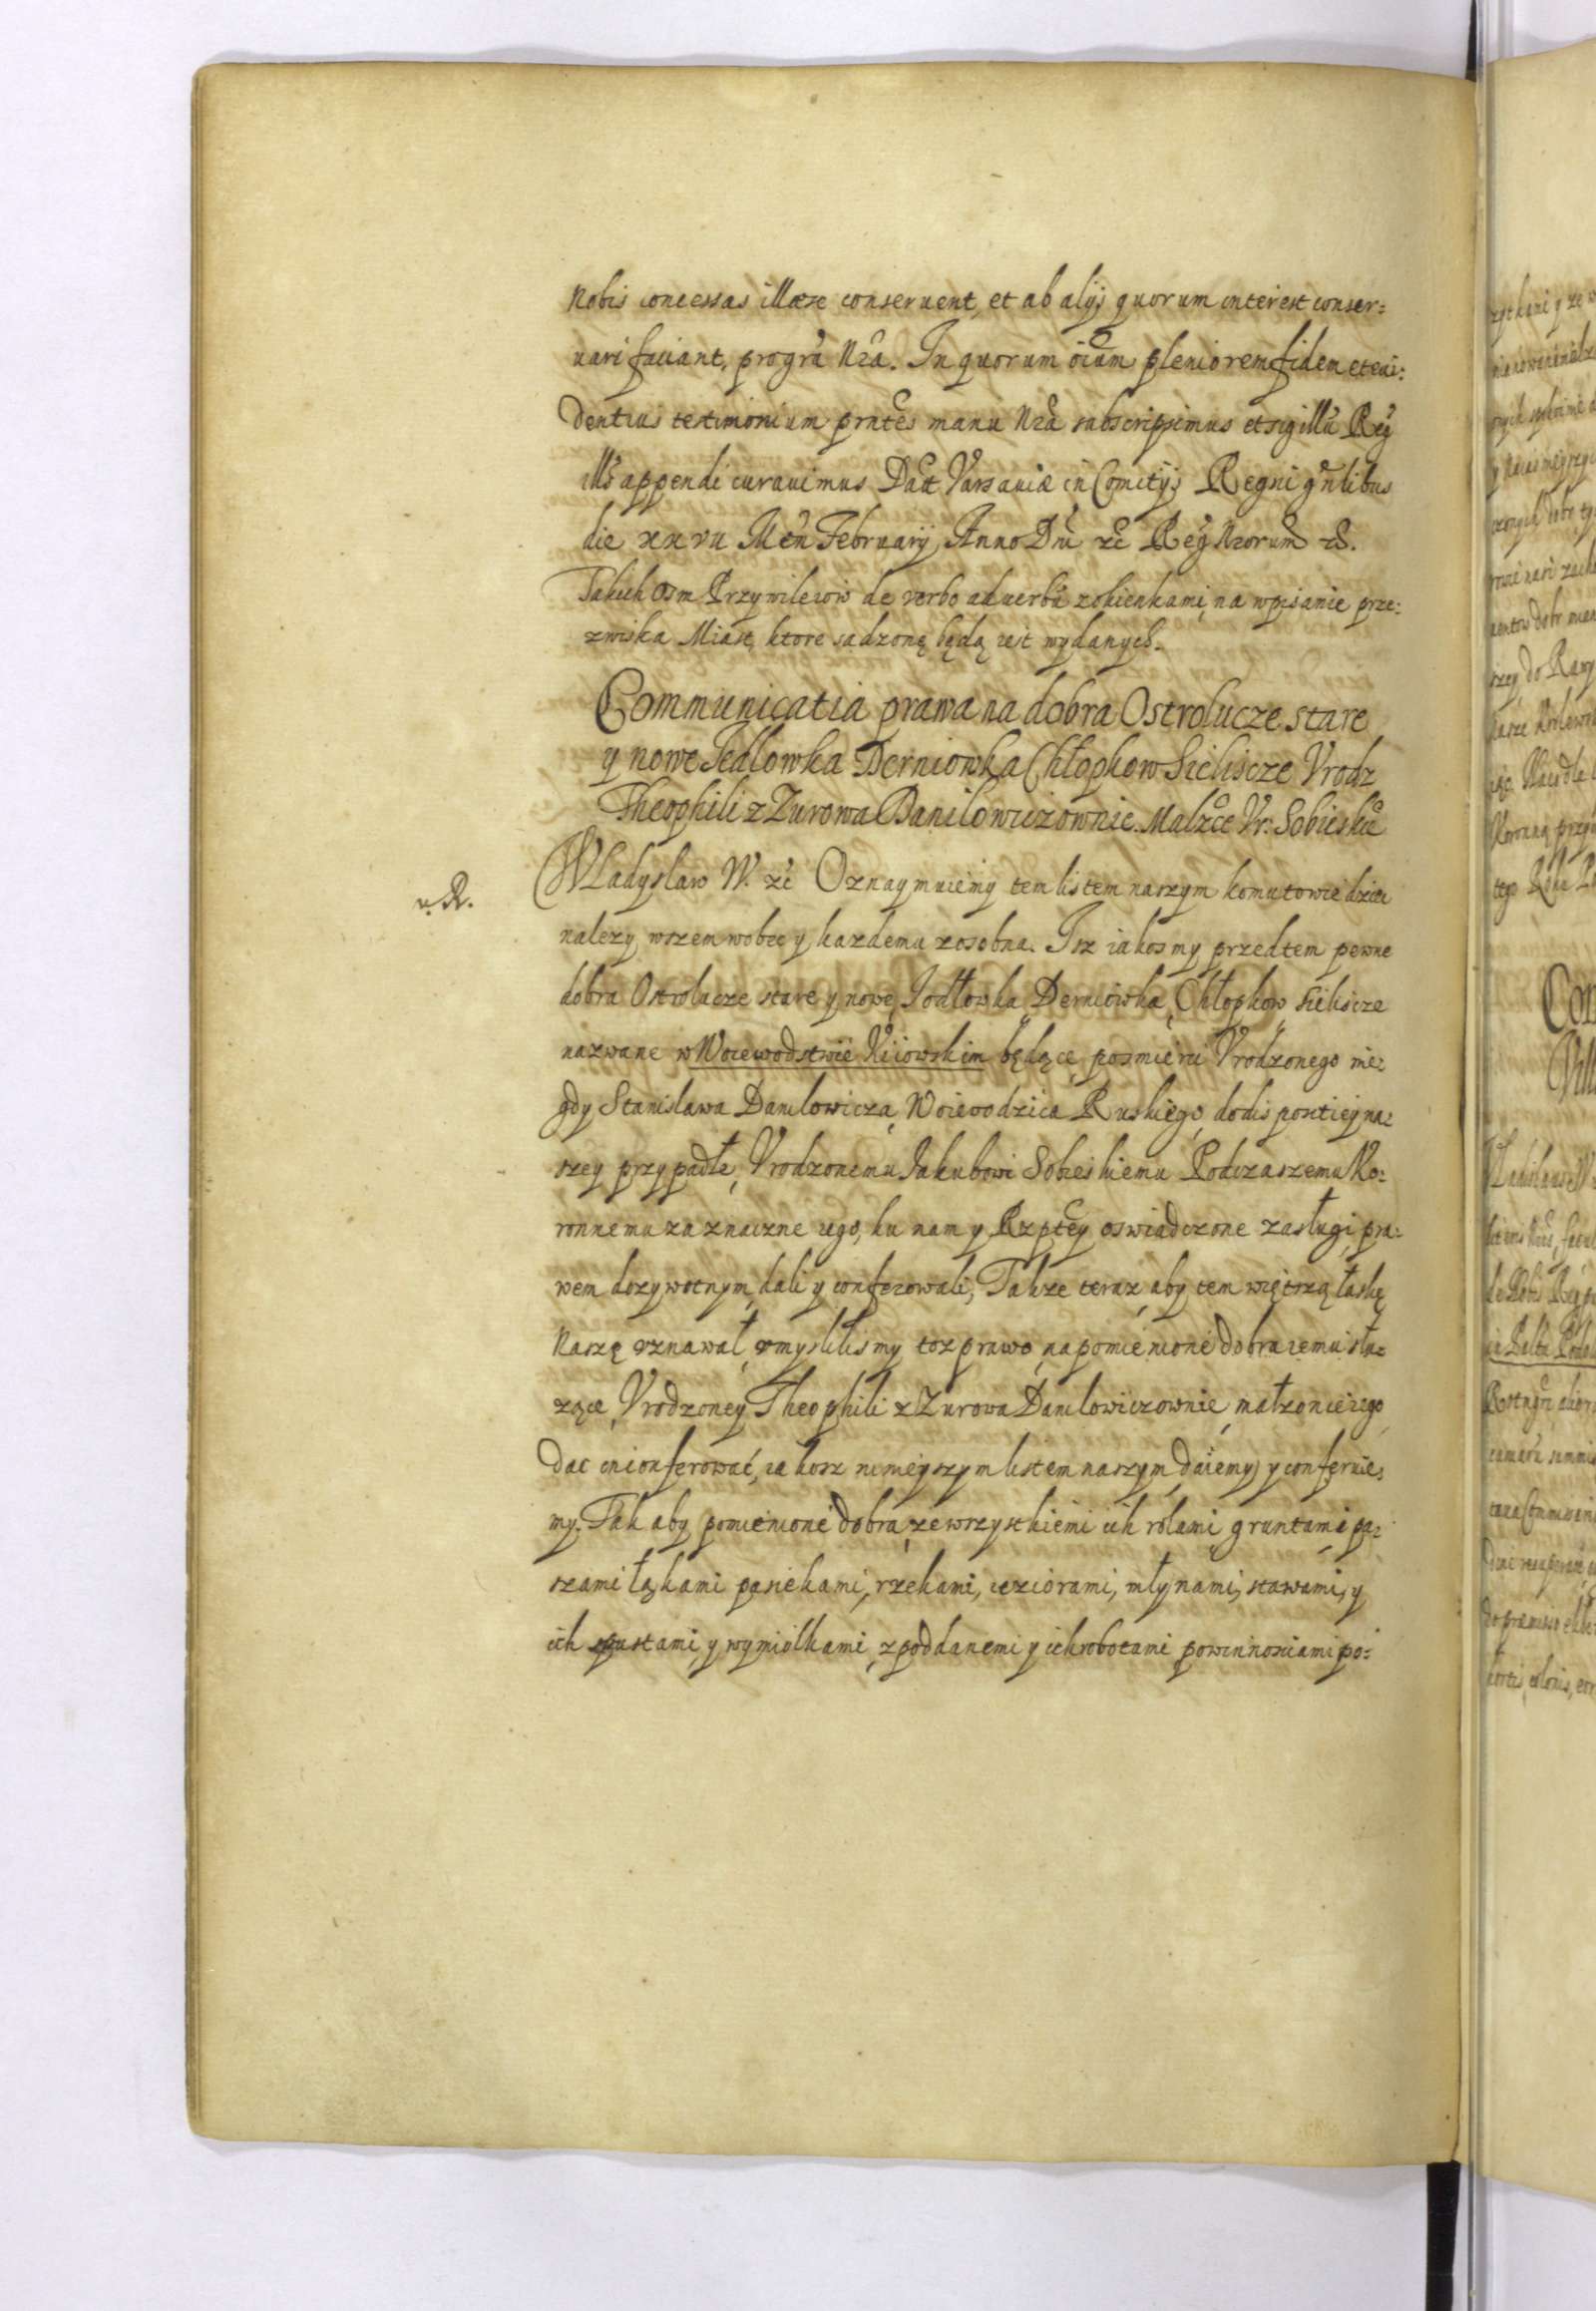 Nobis concessas illæse conseruent, et ab alijs quorum interest conser:
uari faciant, pro gra Nra. In quorum oium pleniorem fidem et eui:
dentius testimonium prntes manu Nra subscripsimus et sigillu Reg
illis appendi curauimus Datt Varsauiæ in Comitijs Regni gnlibus
die xxvii Men February Anno Dni etc Reg Nrorum etc.
Takich osm Przywileiow de verbo ad uerbu z okienkami na wpisanie prze:
zwiska Miast, ktore sadzonę będą iest wydanych.
Communicatia prawa na dobra Ostrolucze stare
y nowe Jedlowka Derniowka Chłopkow Sieliscze Vrodz
Theophili z Zurowa Danilowiczownie. Malzce Vr: Sobieskie
v. R.
Wladyslaw IV. etc Oznaymuiemy tem listem naszym komu to wiedziec
nalezy wszem wobec y kazdemu zosobna. Isz iakosmy przedtem pewne
dobra Ostrolucze stare y nowe, Jodłowka, Derniowka, Chłopkow Sieliscze
nazwane w Woiewodstwie Kiiowskim będące po smierci Vrodzonego nie:
gdy Stanislawa Danilowicza, Woiewodzica Ruskiego, do dispositiey na:
szey przypadłe, Vrodzonemu Jakubowi Sobieskiemu Podczaszemu Ko:
ronnemu za znaczne iego, ku nam y Rzptey oswiadczone zasługi, pra:
wem dozywotnym dali y conferowali, Takze teraz aby tem więtszą łaskę
Naszę vznawał, vmyslilismy toz prawo na pomienione dobra iemu słu:
zące Vrodzoney Theophili z Zurowa Danilowiczownie małzonce iego
dac i conferować, iakosz nineyszym listem naszym daiemy y conferuie:
my. Tak aby pomienione dobra ze wszystkiemi ich rolami gruntami pa:
szami łąkami pasiekami, rzekami, ieziorami, młynami, stawami, y
ich spustami, y wymiolkami, z poddanemi y ich robotami powinnosciami po: